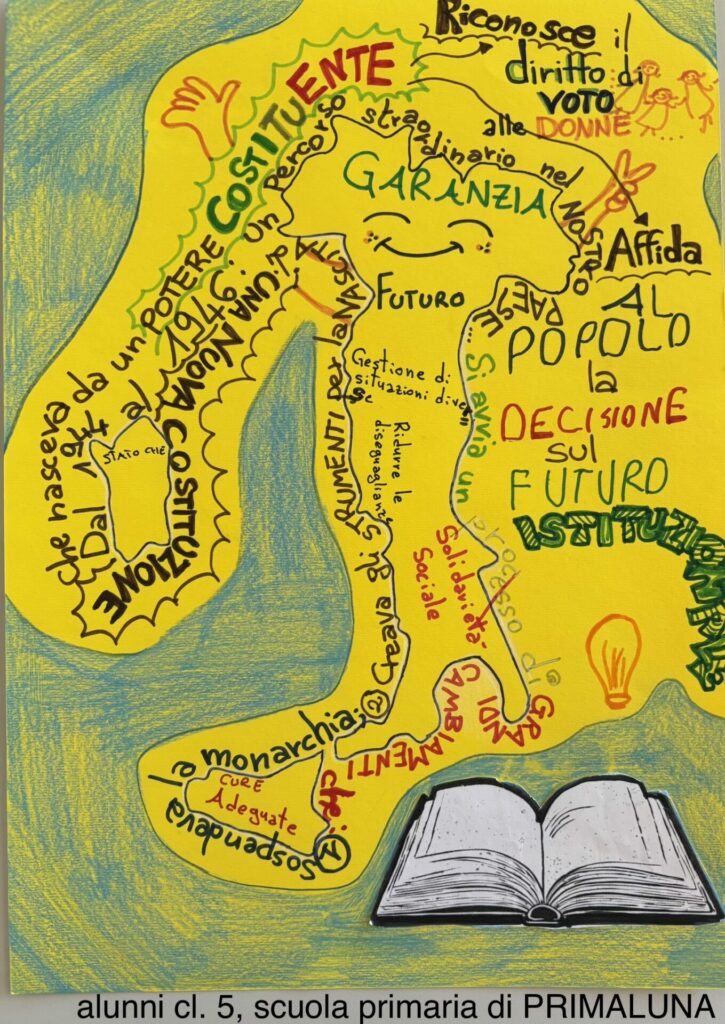 Riconosce il
diritto di
VOTO
alle DONNE
Che nasceva da un POTERE COSTITUENTE
Affida
AL
POPOLO
la
DECISIONE
sul
FUTURO
ISTITUZIONALE
Dal 1947 al 1976: un percorso straordinario nel NOSTRO PAESE...
Si avvia un processo di GRANDI CAMBIAMENTI che:
① Sospendeva la monarchia;
② Creava gli STRUMENTI per la NASCITA di: UNA NUOVA COSTITUZIONE
GARANZIA
FUTURO
Gestione di
situazioni diverse
Ridurre le
diseguaglianze
Solidarietà
Sociale
STATO CHE
CURE
Adeguate
alunni cl. 5, scuola primaria di PRIMALUNA